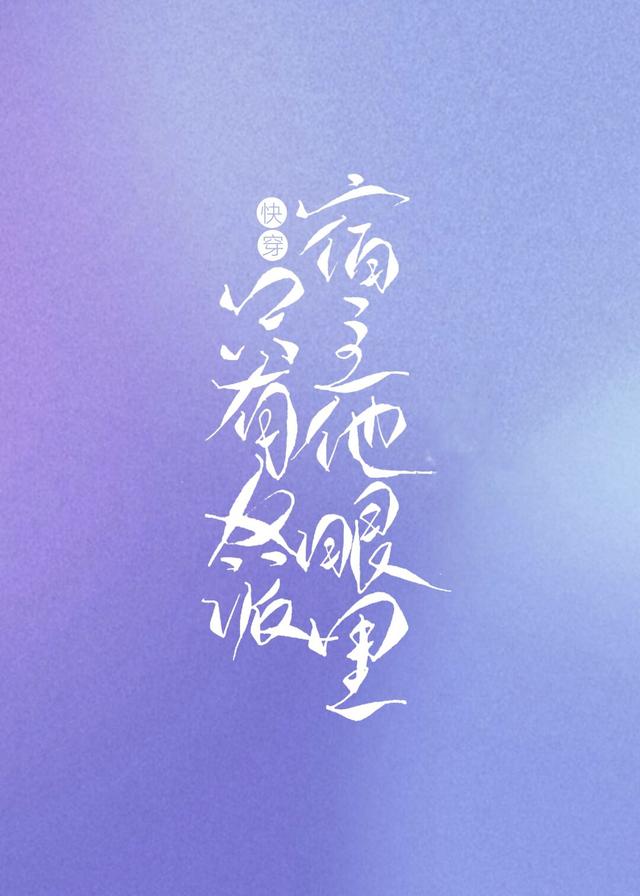 快穿
宿主他眼里
只有反派